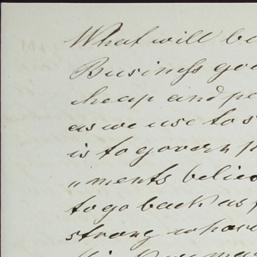 What will be
Business goe
cheap and pe
as we use to s
is to govern p
"ments belie
to go back as f
strong whore